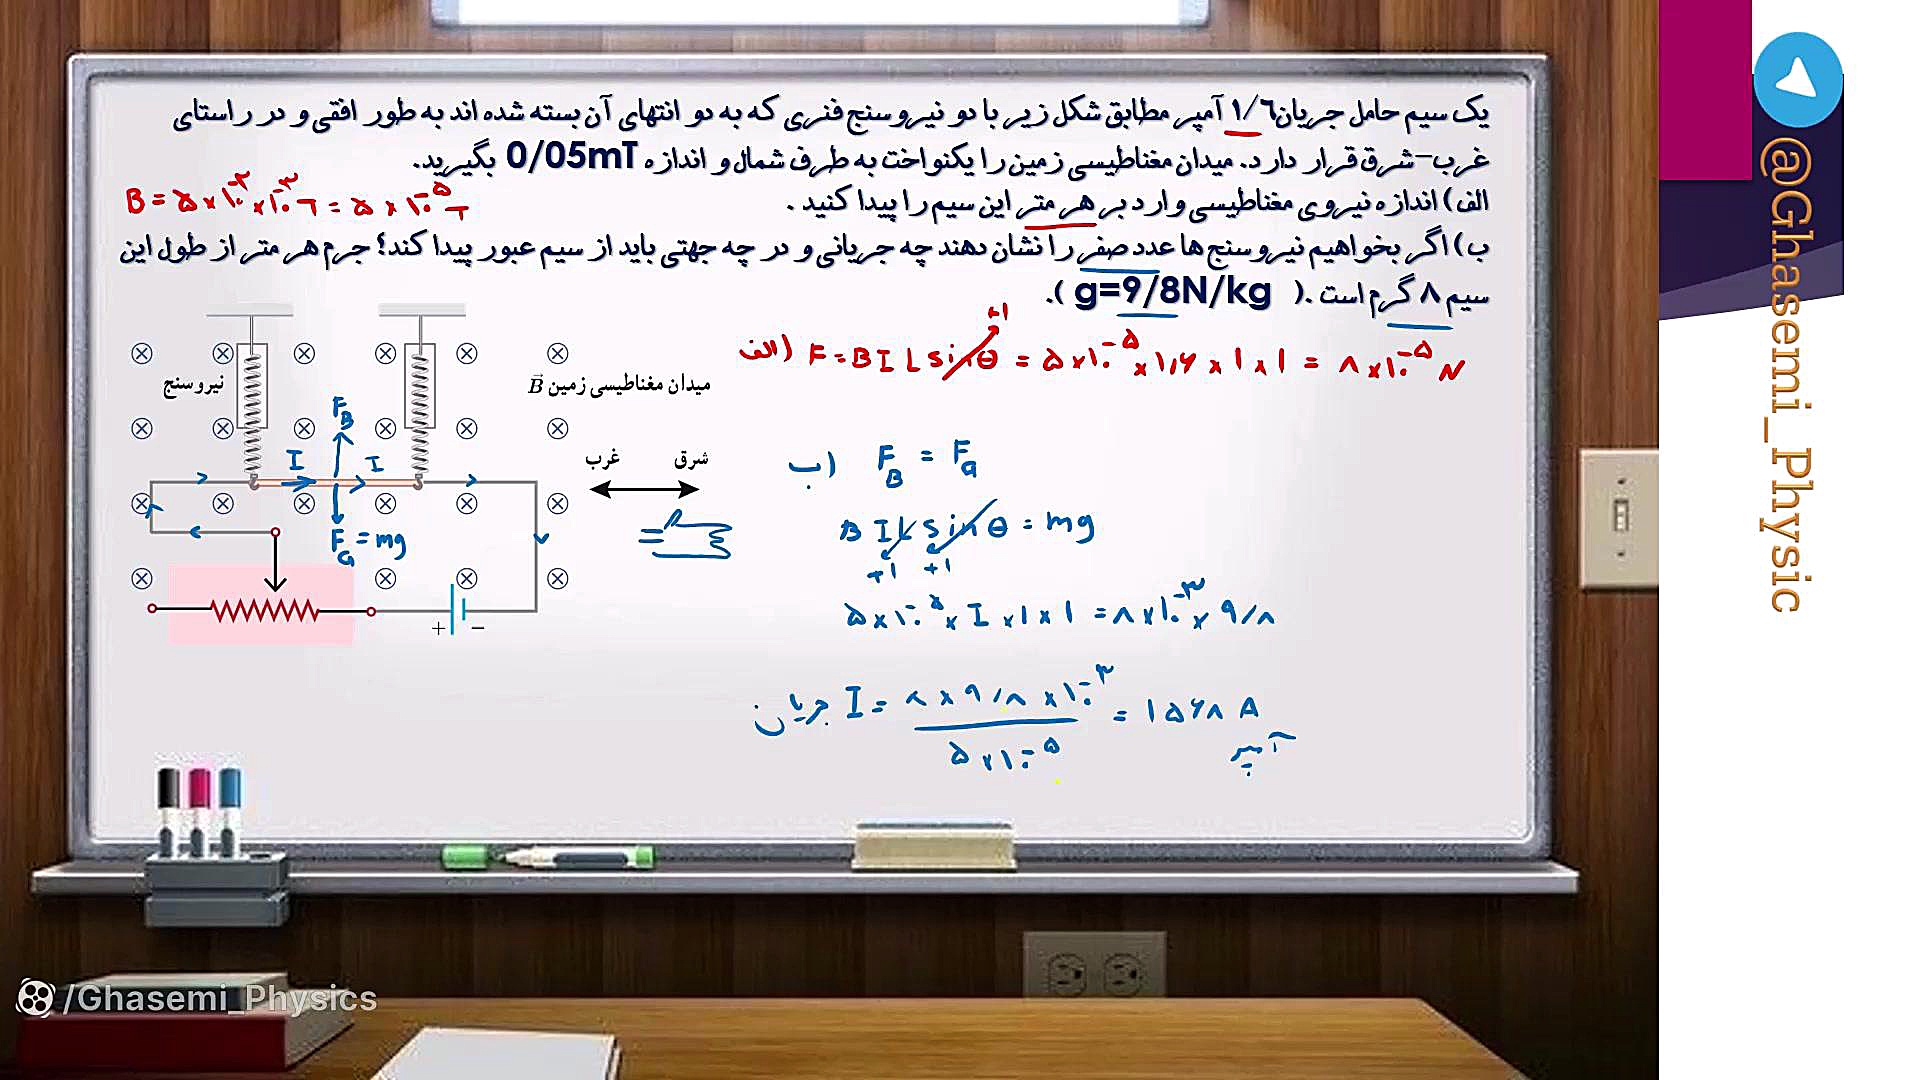 یک سیم حامل جریان۱/۶ آمپر مطابق شکل زیر با دو نیروسنج فنری که به دو انتهای آن بسته شده اند به طور افقی و در راستای
غرب–شرق قرار دارد. میدان مغناطیسی زمین را یکنواخت به طرف شمال و اندازه 0/05mT بگیرید.
B = ۵ × ۱۰⁻² × ۱۰⁻³ T = ۵ × ۱۰⁻⁵ T
الف) اندازه نیروی مغناطیسی وارد بر هر متر این سیم را پیدا کنید .
ب) اگر بخواهیم نیروسنج ها عدد صفر را نشان دهند چه جریانی و در چه جهتی باید از سیم عبور پیدا کند؟ جرم هر متر از طول این
سیم ۸ گرم است .( g=9/8N/kg ).
الف) F = B I L sin θ = ۵ × ۱۰⁻⁵ × ۱٫۶ × ۱ × ۱ = ۸ × ۱۰⁻⁵ N
+۱
نیروسنج
میدان مغناطیسی زمین B
F_B
I
I
F_G = mg
غرب
شرق
+ −
ب) F_B = F_G
B I L sin θ = mg
+۱ +۱
۵ × ۱۰⁻⁵ × I × ۱ × ۱ = ۸ × ۱۰⁻³ × ۹/۸
جریان I = ۸ × ۹/۸ × ۱۰⁻³ / ۵ × ۱۰⁻⁵ = ۱۵۶۸ A
آمپر
@Ghasemi_Physic
/Ghasemi_Physics